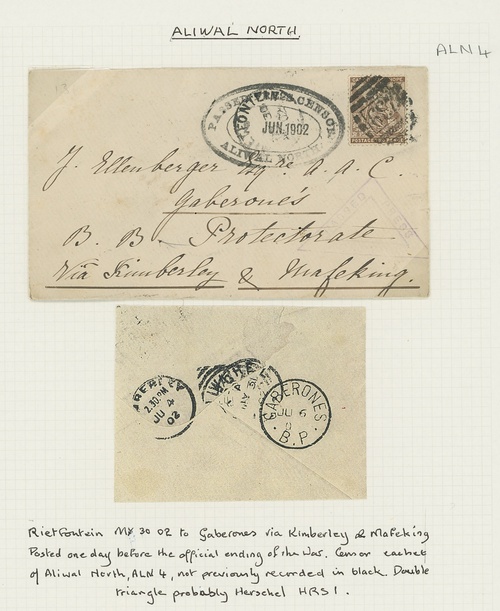 ALIWAL NORTH.
ALN 4
PASSED PRESS CENSOR
JUN 1902
ALIWAL NORTH
POSTAGE
J. Ellenberger Esqre A. A. C.
Gaberone's
B. B. Protectorate
Via Kimberley & Mafeking.
2.30 PM
JU 4
02
GABERONES
JU 6
B.P.
Rietfontein MY 30 02 to Gaberones via Kimberley & Mafeking
Posted one day before the official ending of the War. Censor cachet
of Aliwal North, ALN 4, not previously recorded in black. Double
triangle probably Herschel HRS1.